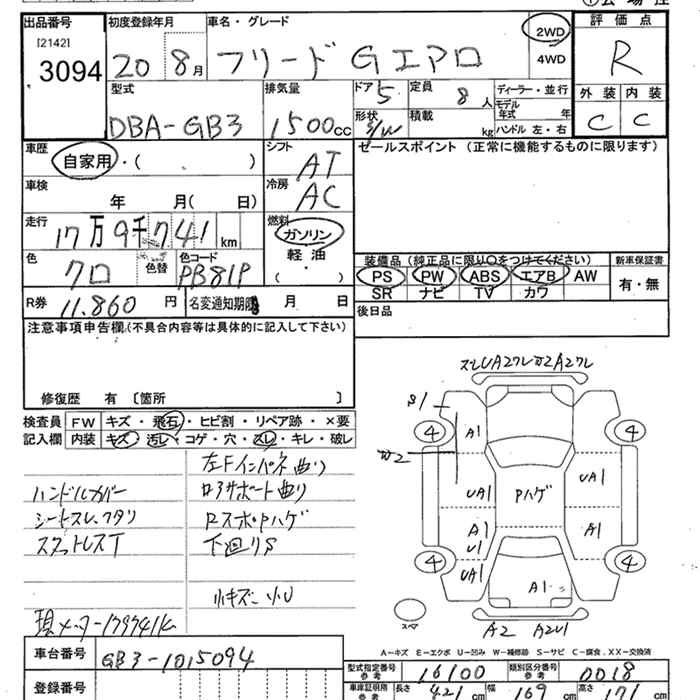 出品番号 初度登録年月 車名・グレード 評価点
[2142] 3094 20 8月 フリード Gエアロ 2WD 4WD R
型式 排気量 ドア 5 定員 8人 ディーラー・並行 外装 内装
DBA-GB3 1500cc 形状 S/W 積載 kg モデル年式 年 ハンドル 左・右 C C
車歴 自家用・( ) シフト AT セールスポイント (正常に機能するものに限ります)
車検 年 月( 日) 冷房 AC
走行 17万9千741km 燃料 ガソリン 軽油 ( )
色 クロ 色替 色コード PB81P
装備品(純正品に限り○をつけてください) 新車保証書
PS PW ABS エアB AW 有・無
SR ナビ TV カワ
R券 11.860円 名変通知期限 月 日 後日品
注意事項申告欄(不具合内容等は具体的に記入して下さい)
修復歴 有 〔箇所 〕
検査員 FW キズ・飛石・ヒビ割・リペア跡・×要
記入欄 内装 キズ・汚レ・コゲ・穴・スレ・キレ・破レ
左Fインパネ曲り
ハンドルカバー
コアサポート曲り
シートスレ、フタリ
下廻りS
小キズ 小U
現メーター179741K
車台番号 GB3-1015094
登録番号
S1
W2
4 4
A1
UA1 Pハゲ UA1
A1 U1 A1
4 4
UA1 A1
スペア
A2 A2U1
A-キズ E-エクボ U-凹み W-補修跡 S-サビ C-腐食 ×、××-交換済
型式指定番号 参考 16100 類別区分番号 参考 0018
車庫証明用 参考 長さ 421cm 幅 169cm 高さ 171cm